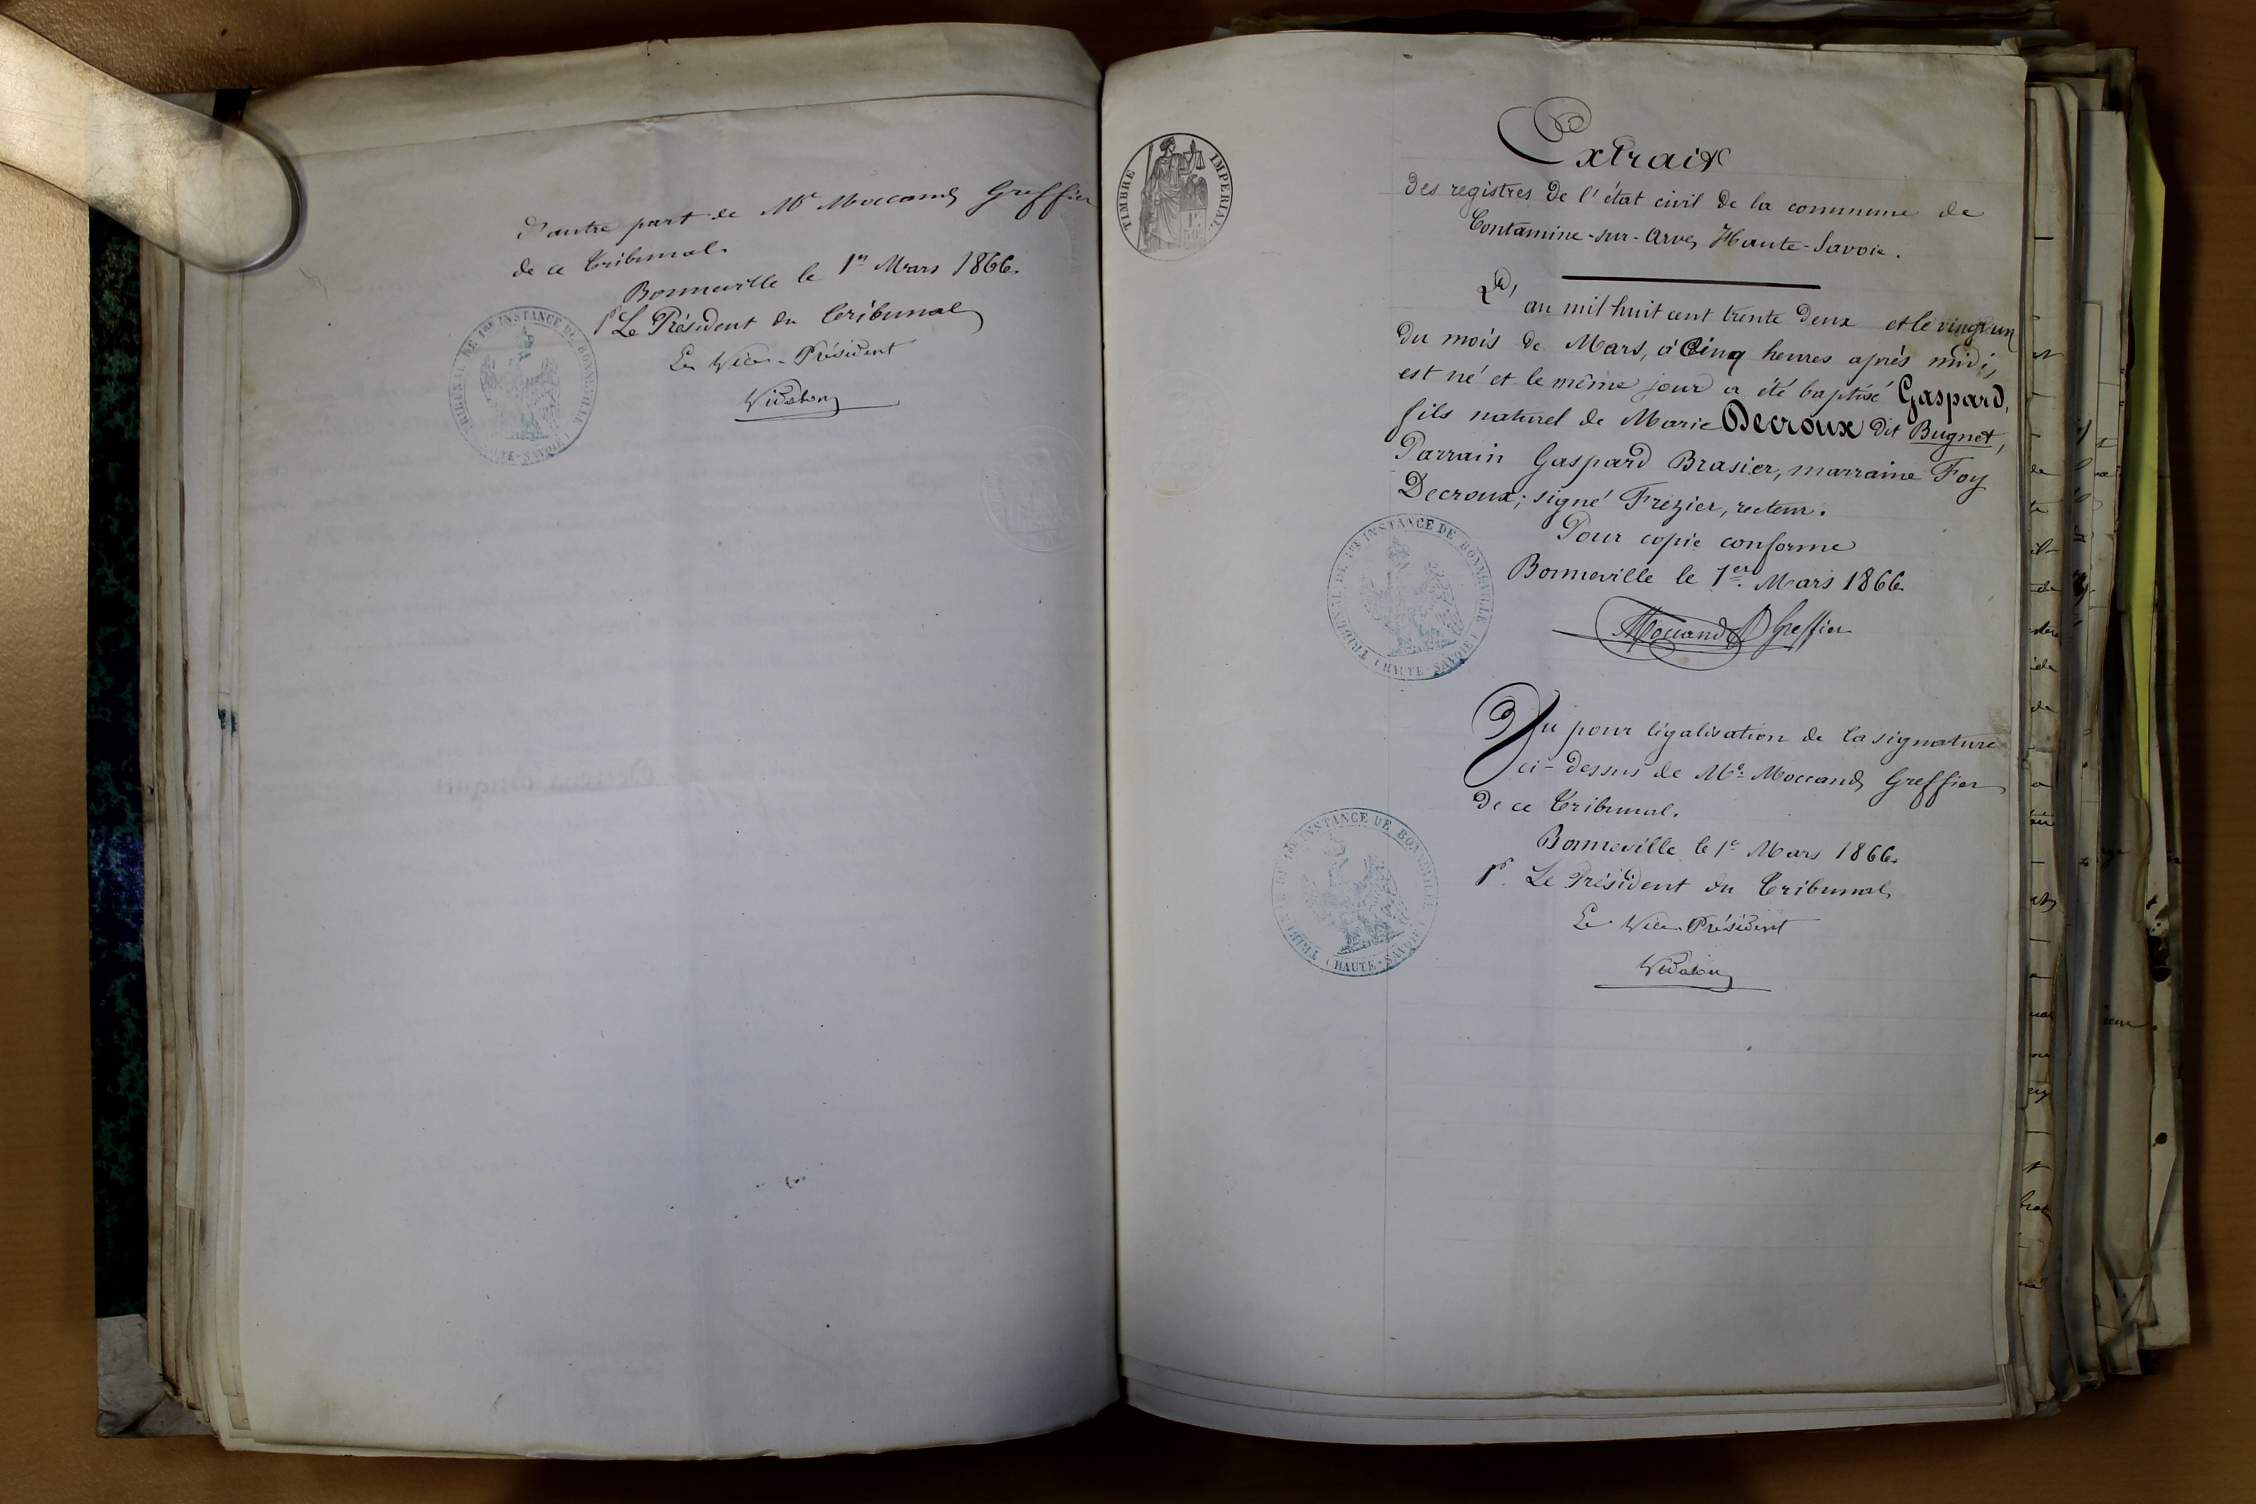 d'autre part de Me Moccand Greffier
de ce Tribunal.
Bonneville le 1er Mars 1866.
Pr Le Président du Tribunal
Le Vice-Président
Vidalon
TRIBUNAL DE 1ERE INSTANCE DE BONNEVILLE
HAUTE-SAVOIE
TIMBRE IMPERIAL
Extrait
des registres de l'état civil de la commune de
Contamine-sur-Arve, Haute-Savoie.
L'an mil huit cent trente deux et le vingt un
du mois de Mars, à Cinq heures après midi,
est né et le même jour a été baptisé Gaspard,
fils naturel de Marie Decroux dit Bugnet,
Parrain Gaspard Brasier, marraine Foy
Decroux; signé Frezier, recteur.
Pour copie conforme
Bonneville le 1er Mars 1866.
Moccand Greffier
TRIBUNAL DE 1ERE INSTANCE DE BONNEVILLE
(HAUTE-SAVOIE)
Vu pour légalisation de la signature
ci-dessus de Me Moccand Greffier
de ce Tribunal.
Bonneville le 1er Mars 1866.
Pr. Le Président du Tribunal
Le Vice-Président
Vidalon
TRIBUNAL DE 1ERE INSTANCE DE BONNEVILLE
(HAUTE-SAVOIE)